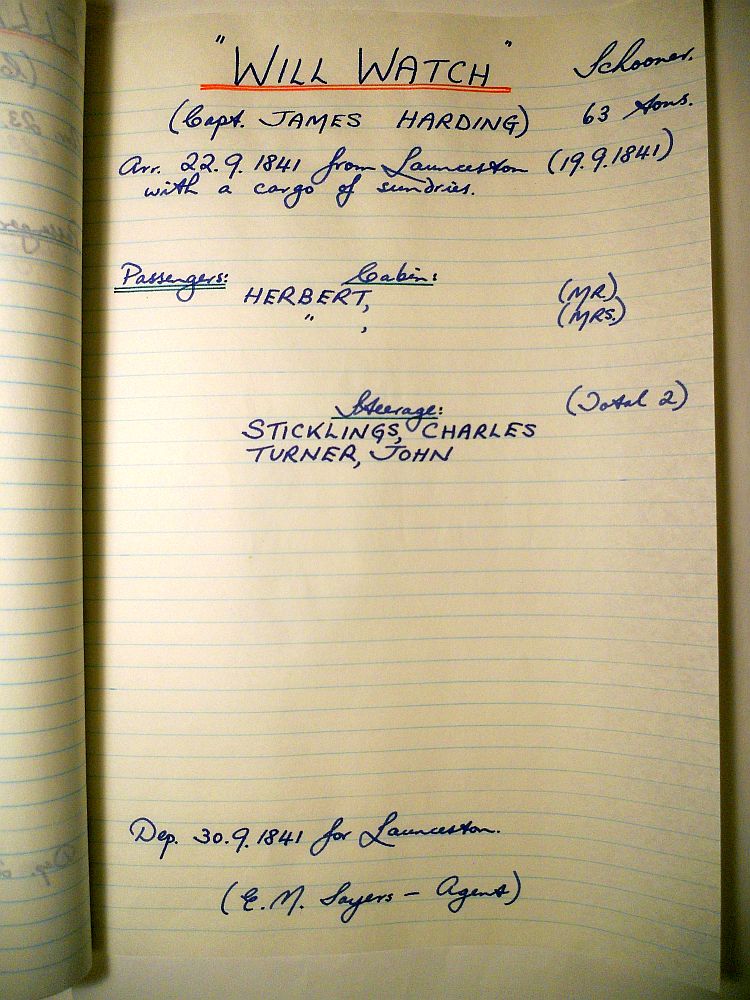 "WILL WATCH" Schooner.
(Capt. JAMES HARDING) 63 tons.
Arr. 22.9.1841 from Launceston (19.9.1841)
with a cargo of sundries.
Passengers: Cabin:
HERBERT, (MR.)
" , (MRS.)
Steerage: (Total 2)
STICKLINGS, CHARLES
TURNER, JOHN
Dep. 30.9.1841 for Launceston.
(E. M. Sayers - Agent)